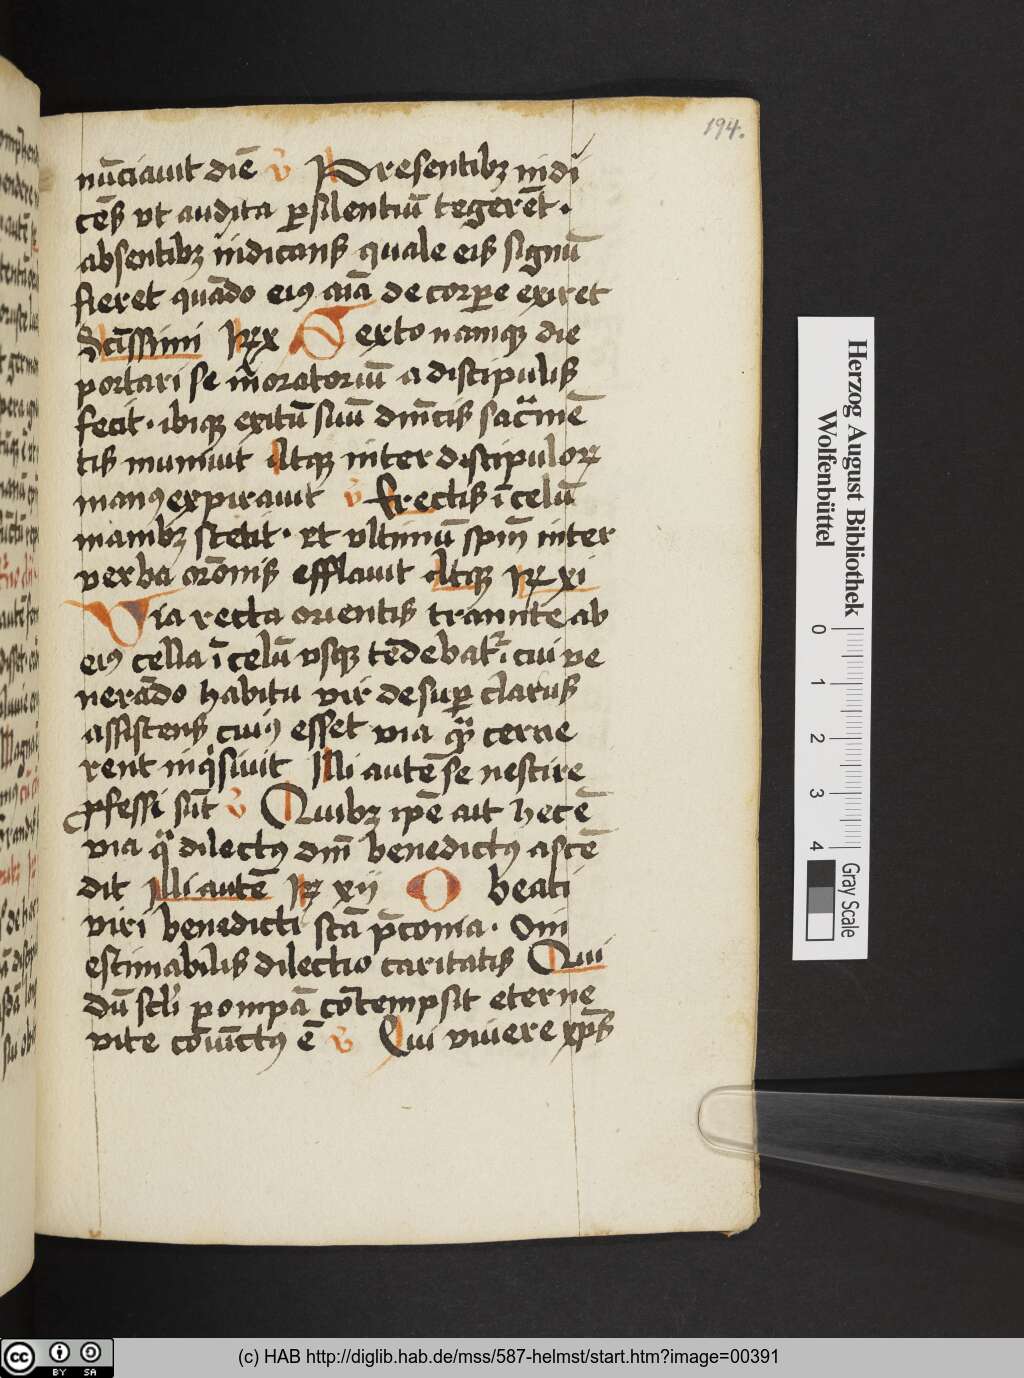 194.
nūciauit diē v̄ Presentibꝫ indi
cēs vt audita ꝑsilentiū tegerēt ·
absentibꝫ indicans quale eis signū
fieret quādo eiꝰ aīa de corꝑe exiret
Scīssimi ℞ x Sexto namqꝫ die
portari se in oratoriū a discipulis
fecit · ibiqꝫ exitū suū dn̄icis sacͣmē
tis muniuit Atqꝫ inter discipuloꝝ
manꝰ expirauit v̄ Erectis ī celū
manibꝫ stetit · et vltimū spm̄ inter
verba orōnis efflauit Atqꝫ ℞ xi
Via recta orientis tramite ab
eiꝰ cella ī celū vsqꝫ tēdebatͬ cui ve
nerādo habitu vir desuꝑ clarus
assistens cuiꝰ esset via qͣ cerne
rent inqͥsiuit Illi autē se nescire
ꝓfessi sūt v̄ Quibꝫ ipē ait hec ē
via qͣ dilectꝰ dn̄i benedictꝰ ascē
dit Illi autē ℞ xij O beati
viri benedicti scā p̄conia · O in
estimabilis dilectio caritatis Qui
dū scl̄i pompā cōtempsit eterne
vite cōiūctꝰ ē v̄ Qui viuere xp̄s
Herzog August Bibliothek
Wolfenbüttel
0 1 2 3 4
Gray Scale
cc BY SA
(c) HAB http://diglib.hab.de/mss/587-helmst/start.htm?image=00391